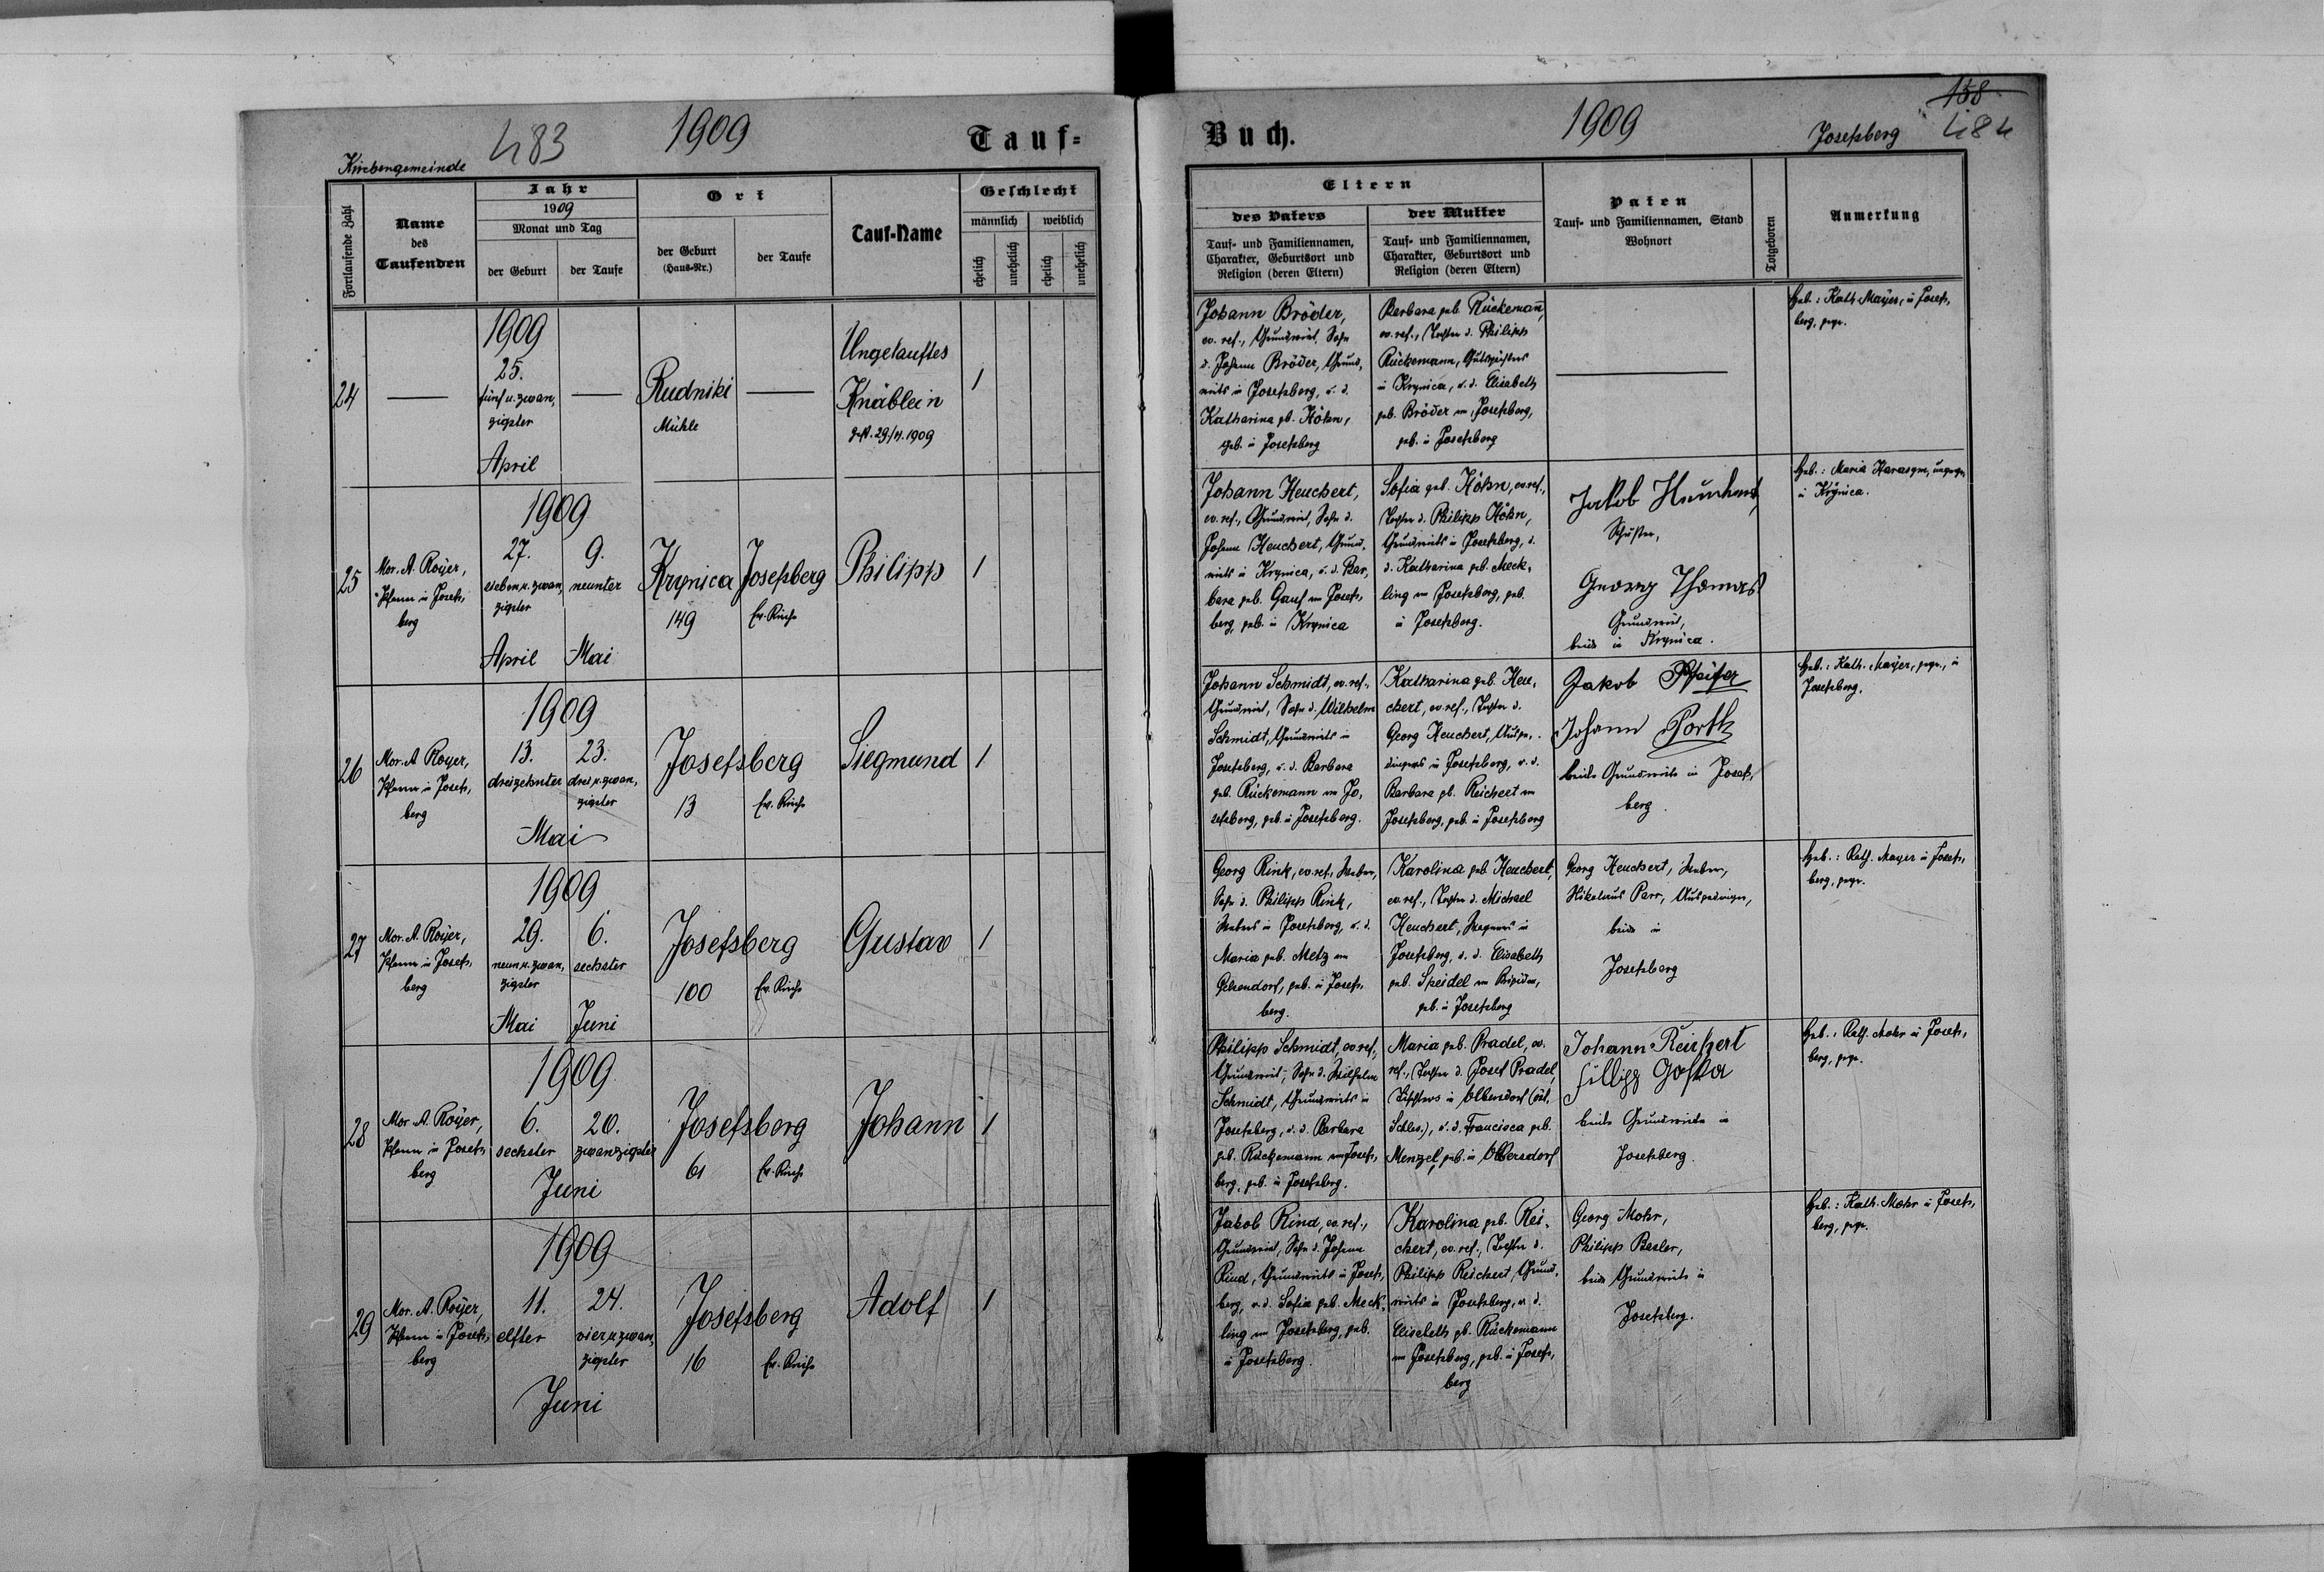 483
1909
Tauf=
Kirchengemeinde
Fortlaufende Zahl
Name
des
Taufenden
Jahr
1909
Monat und Tag
der Geburt
der Taufe
Ort
der Geburt
(Haus-Nr.)
der Taufe
Tauf-Name
Geschlecht
männlich
weiblich
ehelich
unehelich
ehelich
unehelich
24
1909
25.
fünf u. zwan,
zigster
April
Rudniki
Mühle
Ungetauftes
Knäblein
gest. 29/4. 1909
1
25
Mor. A. Royer,
Pfarrer in Josefs,
berg
1909
27.
sieben u. zwan,
zigster
April
9.
neunter
Mai
Krynica
149
Josefsberg
Ev. Kirche
Philipp
1
26
Mor. A. Royer,
Pfarrer in Josefs,
berg
1909
13.
dreizehnter
23.
drei u. zwan,
zigster
Mai
Josefsberg
13
Ev. Kirche
Siegmund
1
27
Mor. A. Royer,
Pfarrer in Josefs,
berg
1909
29.
neun u. zwan,
zigster
Mai
6.
sechster
Juni
Josefsberg
100
Ev. Kirche
Gustav
1
28
Mor. A. Royer,
Pfarrer in Josefs,
berg
1909
6.
sechster
20.
zwanzigster
Juni
Josefsberg
61
Ev. Kirche
Johann
1
29
Mor. A. Royer,
Pfarrer in Josefs,
berg
1909
11.
elfter
24.
vier u. zwan,
zigster
Juni
Josefsberg
16
Ev. Kirche
Adolf
1
Buch.
1909
158
Josefsberg
484
Eltern
des Vaters
Tauf- und Familiennamen,
Charakter, Geburtsort und
Religion (deren Eltern)
der Mutter
Tauf- und Familiennamen,
Charakter, Geburtsort und
Religion (deren Eltern)
Paten
Tauf- und Familiennamen, Stand
Wohnort
Totgeboren
Anmerkung
Johann Bröder,
ev. ref., Grundwirt, Sohn
d. Johann Bröder, Grund,
wirts in Josefsberg, u. d.
Katharina gb. Höhn,
geb. in Josefsberg
Barbara geb. Rückemann,
ev. ref., Tochter d. Philipp
Rückemann, Gutspächters
in Krynica, u. d. Elisabeth
geb. Bröder aus Josefsberg,
geb. in Josefsberg
Heb.: Kath. Mayer, in Josefs,
berg, gepr.
Johann Heuchert,
ev. ref., Grundwirt, Sohn d.
Johann Heuchert, Grund,
wirts in Krynica, u. d. Bar,
bara geb. Gauf aus Josefs,
berg, geb. in Krynica
Sofia geb. Höhn, ev. ref.,
Tochter d. Philipp Höhn,
Grundwirts in Josefsberg, u.
d. Katharina geb. Meck,
ling aus Josefsberg, geb.
in Josefsberg.
Jakob Heuchert,
Schuster,
Georg Thomas
Grundwirt,
beide in Krynica.
Heb.: Maria Harasym, ungepr.,
in Krynica.
Johann Schmidt, ev. ref.,
Grundwirt, Sohn d. Wilhelm
Schmidt, Grundwirts in
Josefsberg, u. d. Barbara
geb. Rückemann aus Jo,
sefsberg, geb. in Josefsberg.
Katharina geb. Heu,
chert, ev. ref., Tochter d.
Georg Heuchert, Ausge,
dingers in Josefsberg, u. d.
Barbara gb. Reichert aus
Josefsberg, geb. in Josefsberg
Jakob Pfeifer
Johann Porth
beide Grundwirte in Josefs,
berg.
Heb.: Kath. Mayer, gepr., in
Josefsberg.
Georg Rink, ev. ref., Weber,
Sohn d. Philipp Rink,
Webers in Josefsberg, u. d.
Maria geb. Metz aus
Gelsendorf, geb. in Josefs,
berg.
Karolina geb. Heuchert,
ev. ref., Tochter d. Michael
Heuchert, Wagners in
Josefsberg, u. d. Elisabeth
geb. Speidel aus
geb. in Josefsberg
Georg Heuchert, Weber,
Nikolaus Parr, Ausgedinger,
beide in
Josefsberg
Heb.: Kath. Mayer in Josefs,
berg, gepr.
Philipp Schmidt, ev. ref.,
Grundwirt, Sohn d. Wilhelm
Schmidt, Grundwirts in
Josefsberg, u. d. Barbara
geb. Rückemann aus Josefs,
berg, geb. in Josefsberg.
Maria geb. Pradel, ev.
ref., Tochter d. Josef Pradel,
Tischlers in Olbersdorf (öst.
Schles.), u. d. Francisca geb.
Menzel, geb. in Olbersdorf
Johann Reichert
beide Grundwirte in
Josefsberg.
Heb.: Kath. Mohr in Josefs,
berg, gepr.
Jakob Rind, ev. ref.,
Grundwirt, Sohn d. Johann
Rind, Grundwirts in Josefs,
berg, u. d. Sofia geb. Meck,
ling aus Josefsberg, geb.
in Josefsberg.
Karolina geb. Rei,
chert, ev. ref., Tochter d.
Philipp Reichert, Grund,
wirts in Josefsberg, u. d.
Elisabeth gb. Rückemann
aus Josefsberg, geb. in Josefs,
berg
Georg Mohr,
Philipp Basler,
beide Grundwirte in
Josefsberg.
Heb.: Kath. Mohr in Josefs,
berg, gepr.